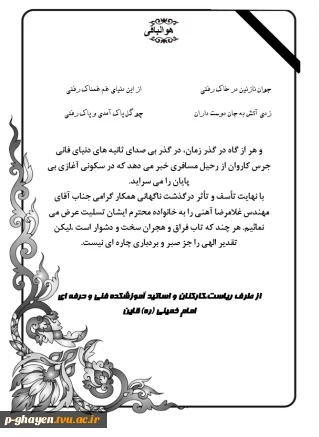 هوالباقی
جوان نازنین در خاک رفتی از این دنیای غم غمناک رفتی
زدی آتش به جان دوست داران چو گل پاک آمدی و پاک رفتی
و هر از گاه در گذر زمان، در گذر بی صدای ثانیه های دنیای فانی
جرس کاروان از رحیل مسافری خبر می دهد که در سکونی آغازی بی
پایان را می سراید.
با نهایت تأسف و تأثر درگذشت ناگهانی همکار گرامی جناب آقای
مهندس غلامرضا آهنی را به خانواده محترم ایشان تسلیت عرض می
نمائیم. هر چند که تاب فراق و هجران سخت و دشوار است ،لیکن
تقدیر الهی را جز صبر و بردباری چاره ای نیست.
از طرف ریاست،کارکنان و اساتید آموزشکده فنی و حرفه ای
امام خمینی (ره) قاین
p-ghayen.tvu.ac.ir